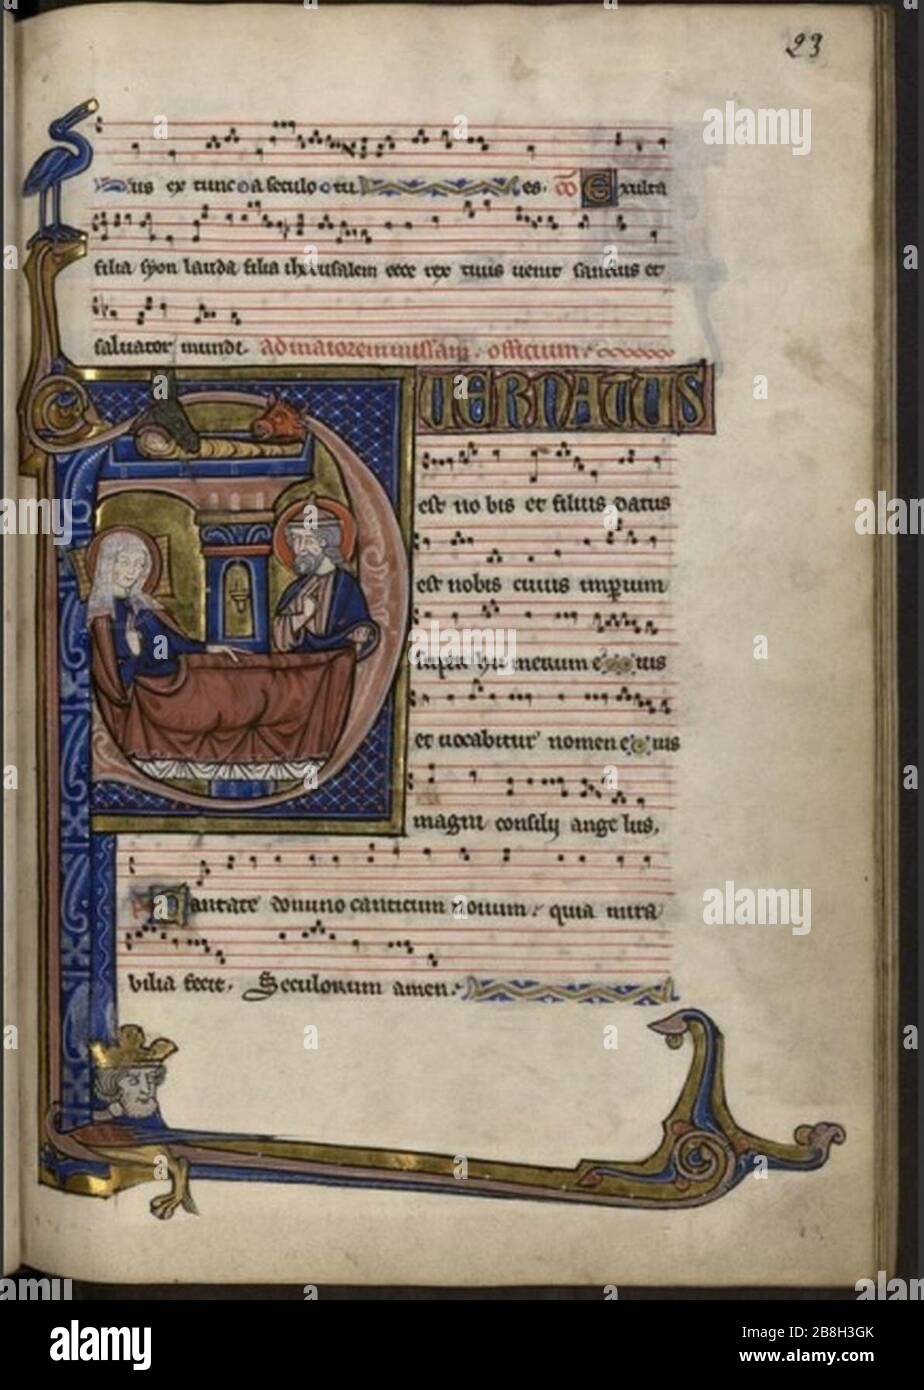 23
us ex tunc a seculo tu es. Exulta
filia syon lauda filia iherusalem ecce rex tuus uenit sanctus et
saluator mundi. ad maiorem missam. officium.
PUER NATUS
est no bis et filius datus
est nobis cuius imperium
super hu merum e ius
et uocabitur nomen e ius
magni consilij ange lus,
Cantate domino canticum nouum. quia mira
bilia fecit. Seculorum amen.
alamy
Image ID: 2B8H3GK
www.alamy.com